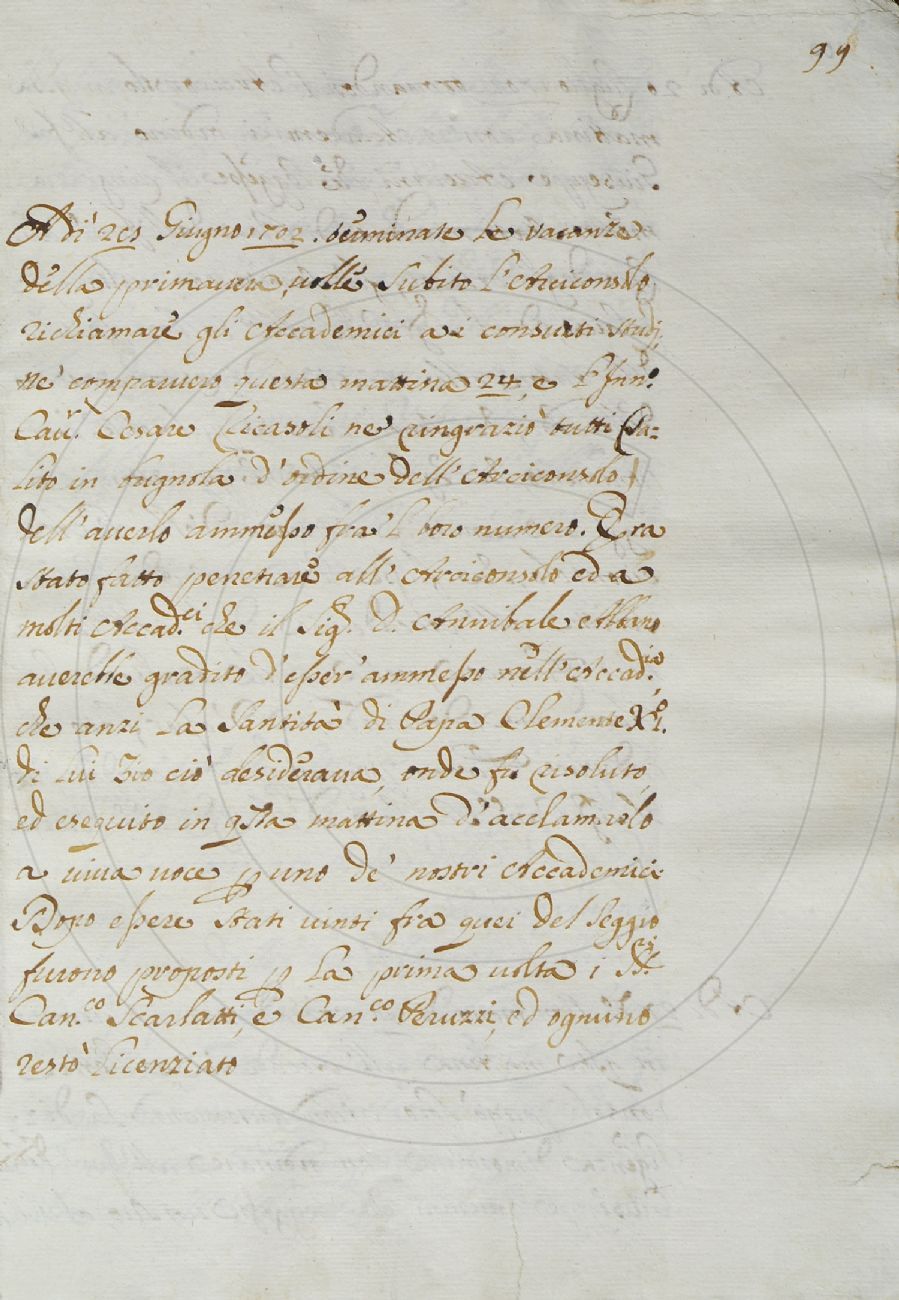 99
Adì 2 Giugno 1702. teminate le vacanze
della primavera, volle subito l'Arciconsolo
richiamare gli Accademici a i consueti studj,
ne' comparvero questa mattina 24, e l'Inn.o
Cau.r Cesare Ricasoli ne ringraziò tutti Sa-
lito in bugnola d'ordine dell'Arciconsolo
dell'averlo ammesso fra' l loro numero. Era
stato fatto penetrare all'Arciconsolo ed a
molti Accad.ci che il Sig.r D. Annibale Albani
averebbe gradito d'esser' ammesso nell'Accad.ia,
che anzi la Santità di Papa Clemente XI.o
di lui Zio ciò desiderava, onde fu risoluto,
ed eseguito in q.sta mattina d'acclamarlo
a viva voce p uno de' nostri Accademici.
Dopo essere stati vinti fra quei del Seggio
furono proposti p la prima volta i SS.ri
Can.co Scarlatti, e Can.co Peruzzi, ed ognuno
restò licenziato